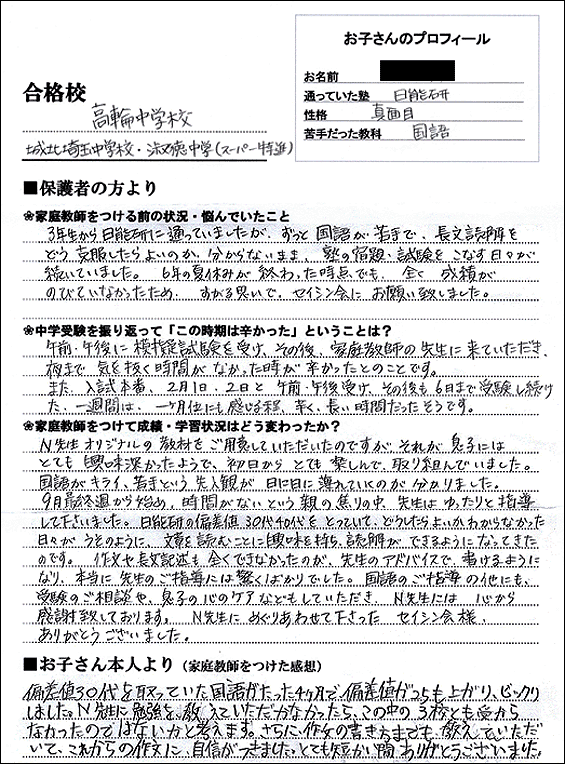 お子さんのプロフィール
お名前
通っていた塾 日能研
性格 真面目
苦手だった教科 国語
合格校
高輪中学校
城北埼玉中学校・淑徳中学(スーパー特進)
■保護者の方より
❀家庭教師をつける前の状況・悩んでいたこと
3年生から日能研に通っていましたが、ずっと国語が苦手で、長文読解を
どう克服したらよいのか、分からないまま、塾の宿題・試験をこなす日々が
続いていました。6年の夏休みが終わった時点でも、全く成績が
のびていなかったため、すがる思いで、セイシン会にお願い致しました。
❀中学受験を振り返って「この時期は辛かった」ということは?
午前・午後に模擬試験を受け、その後、家庭教師の先生に来ていただき、
夜まで気を抜く時間がなかった時が辛かったとのことです。
また、入試本番、2月1日、2日と午前・午後受け、その後も6日まで受験し続け
た、一週間は、一ヶ月位にも感じる程、辛く、長い時間だったそうです。
❀家庭教師をつけて成績・学習状況はどう変わったか?
N先生オリジナルの教材をご用意していただいたのですが、それが息子には
とても興味深かったようで、初日からとても楽しんで、取り組んでいました。
国語がキライ、苦手という先入観が日に日に薄れていくのが分かりました。
9月最終週から始め、時間がないという親の焦りの中、先生はゆったりと指導
して下さいました。日能研の偏差値30代40代をとっていて、どうしたらよいかわからなかった
日々がうそのように、文章を読むことに興味を持ち、読解ができるようになってきた
のです。作文や長文記述も全くできなかったのが、先生のアドバイスで、書けるように
なり、本当に先生のご指導には驚くばかりでした。国語のご指導の他にも、
受験のご相談や、息子の心のケアなどもしていただき、N先生には心から
感謝致しております。N先生にめぐりあわせて下さったセイシン会様、
ありがとうございました。
■お子さん本人より(家庭教師をつけた感想)
偏差値30代を取っていた国語がたった4ヶ月で偏差値が25も上がり、ビックリ
しました。N先生に勉強を教えていただかなかったら、この中の3校とも受から
なかったのではないかと考えます。さらに、作文の書き方までも教えていただ
いて、これからの作文に、自信がつきました。とても短かい間ありがとうございました。